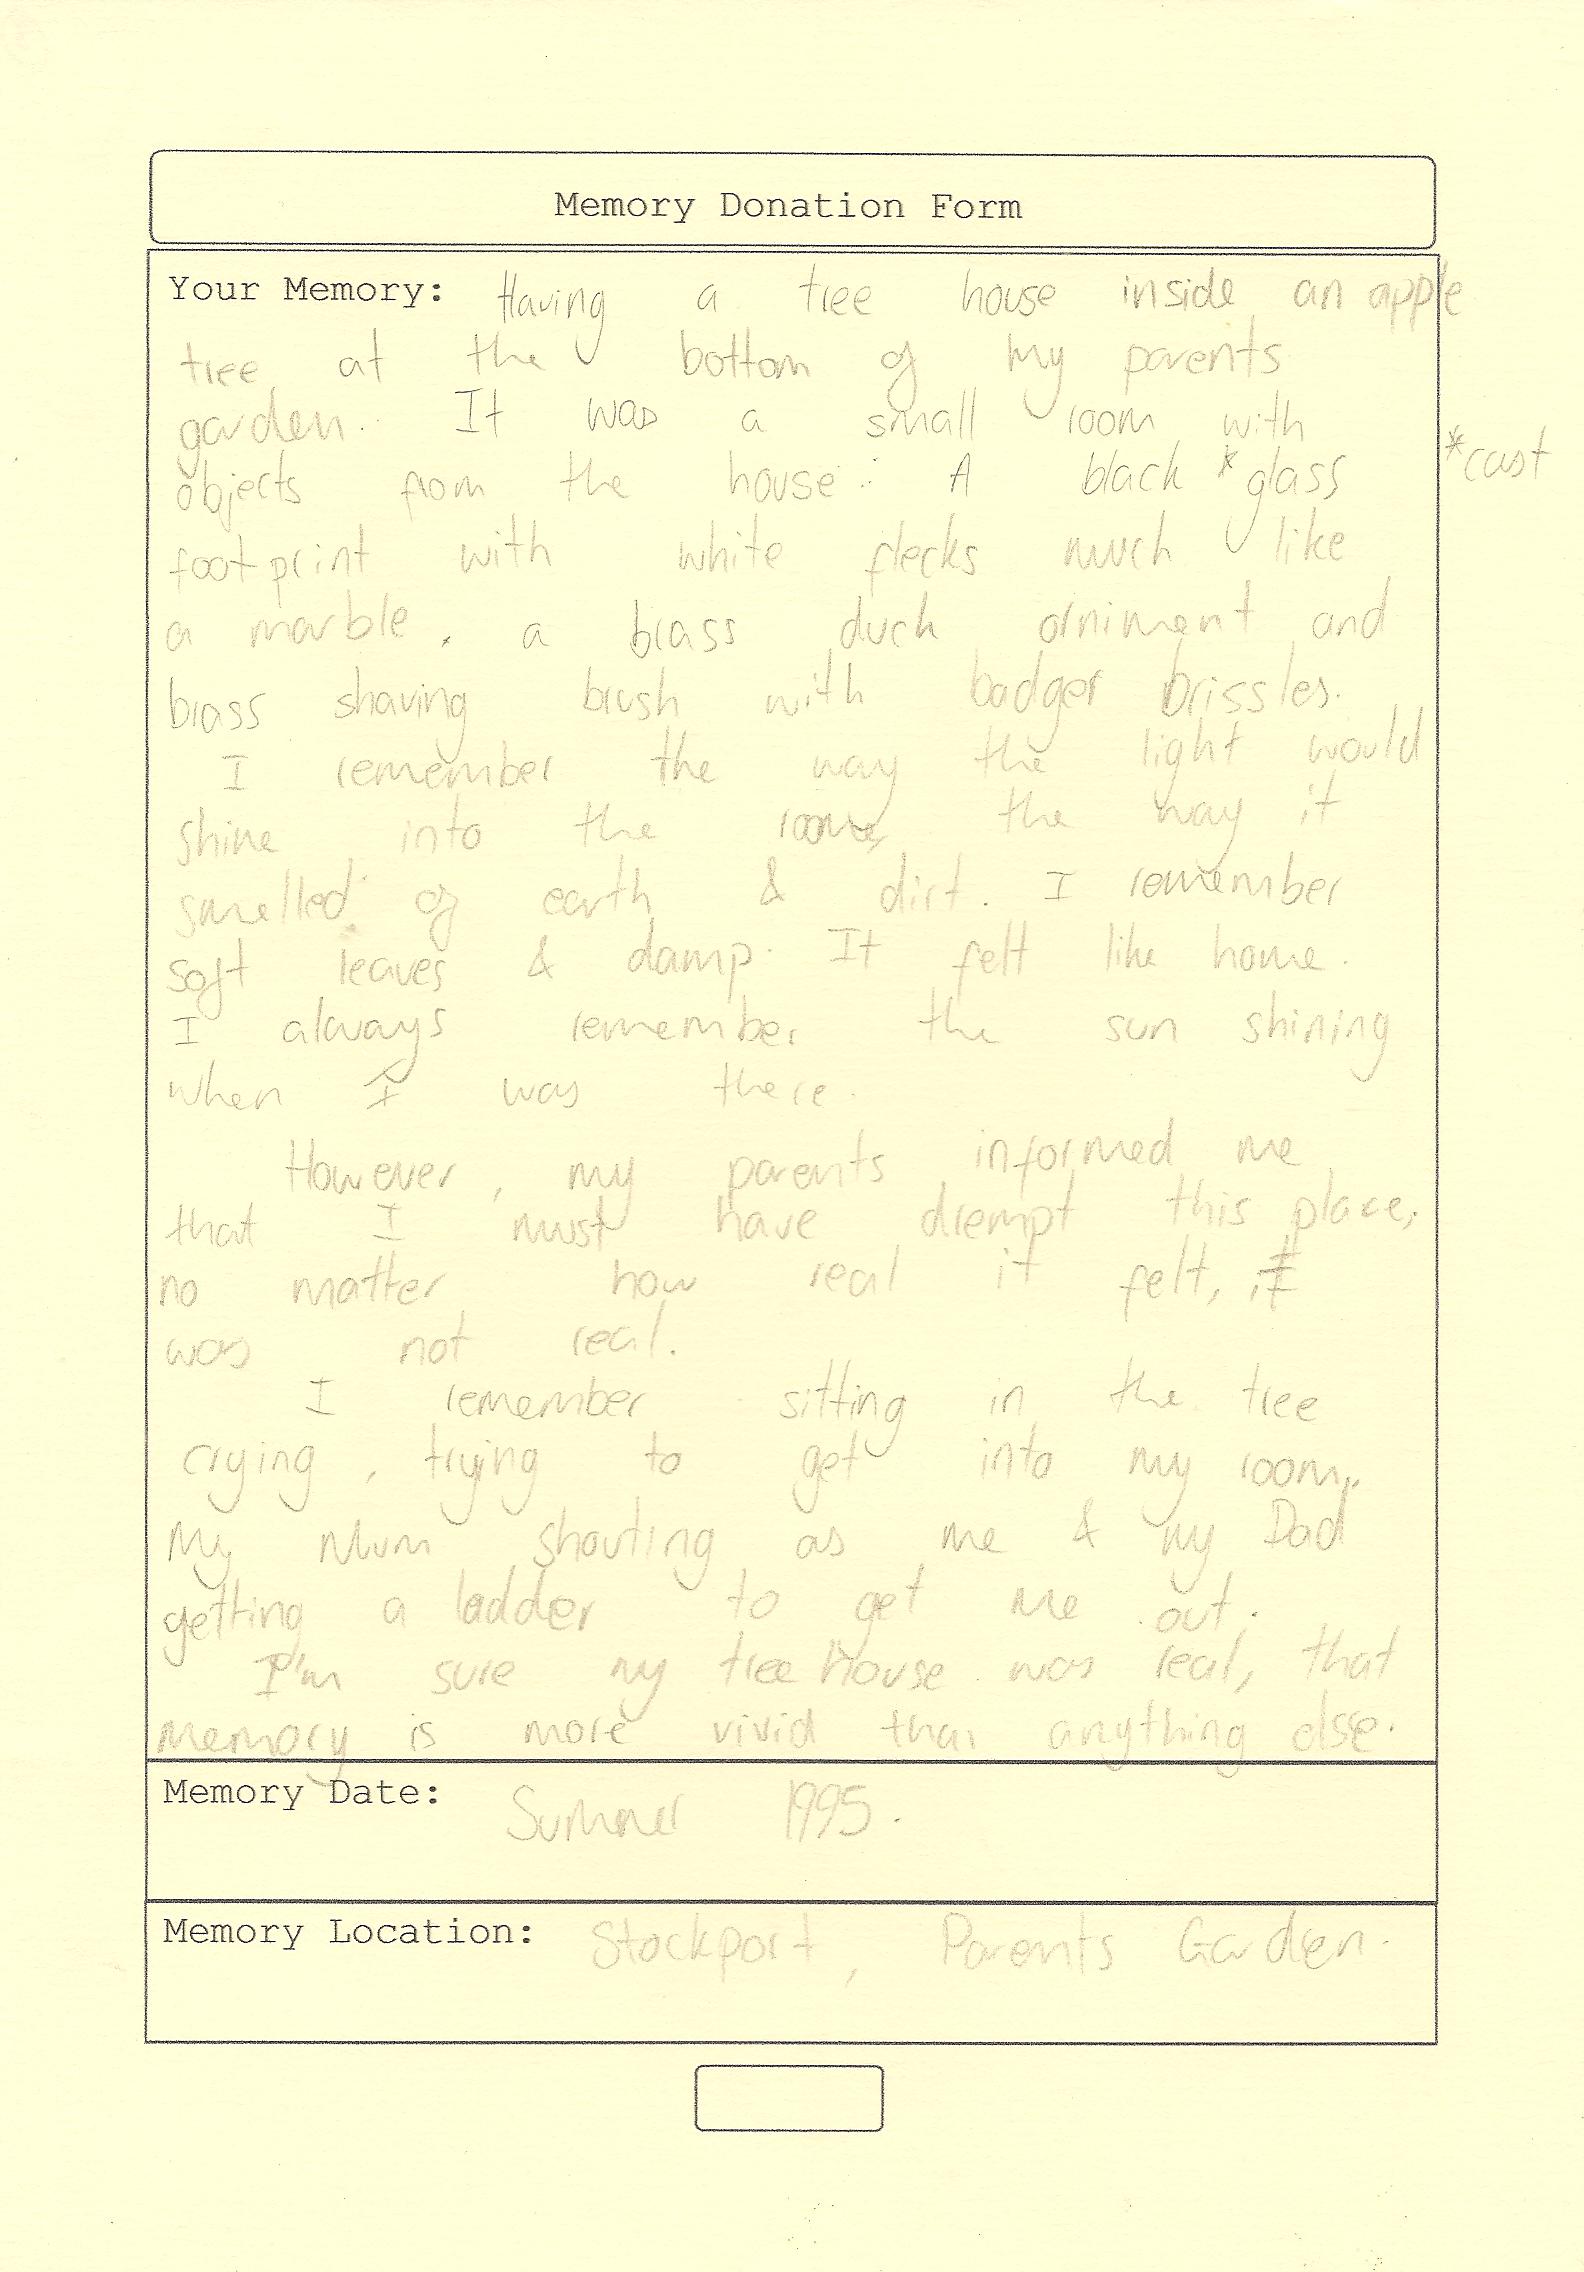 Memory Donation Form
Your Memory: Having a tree house inside an apple
tree at the bottom of my parents
garden. It was a small room with
objects from the house: A black * glass
*cast
footprint with white flecks much like
a marble, a brass duck orniment and
brass shaving brush with badger brissles.
I remember the way the light would
shine into the room, the way it
smelled of earth & dirt. I remember
soft leaves & damp. It felt like home.
I always remember the sun shining
when I was there.
However, my parents informed me
that I must have drempt this place,
no matter how real it felt, it
was not real.
I remember sitting in the tree
crying, trying to get into my room,
My Mum shouting as me & my Dad
getting a ladder to get me out.
I'm sure my tree house was real, that
memory is more vivid than anything else.
Memory Date: Summer 1995.
Memory Location: Stockport, Parents Garden.